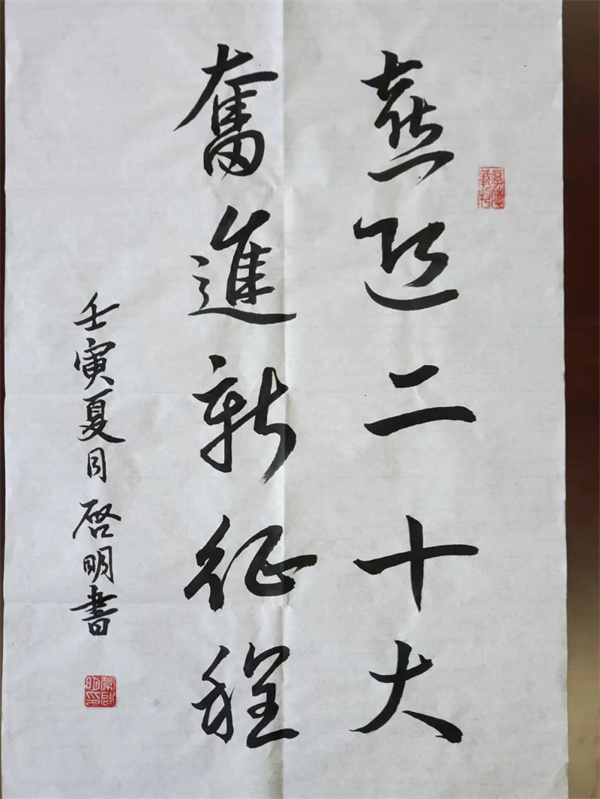 喜迎二十大
奮進新征程
壬寅夏月 啓明書